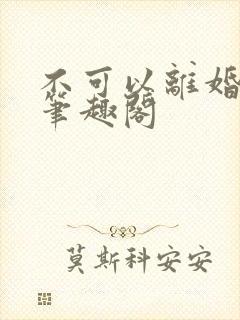 不可以離婚
筆趣閣
莫斯科安安